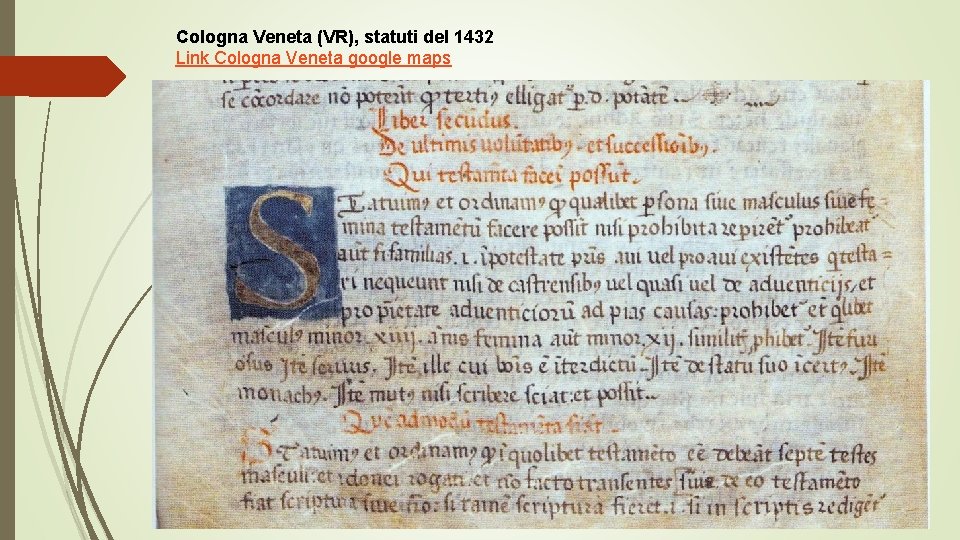 Cologna Veneta (VR), statuti del 1432
Link Cologna Veneta google maps
se cōcordare nō poterīt qp tertiꝰ elligat' p.d. potātē..
Liber secūdus.
De ultimis uolūtatibꝰ et successioībꝰ.
Qui testamīta facēr possūt.
STatuimꝰ et ordinamꝰ qp qualibet psona siue masculus siue fe=
mina testamētū facere possit nisi prohibita repirēt' prohibeāt'
aūt filifamilias .i. ī potestate pris aui uel proaui existētes q testa=
ri nequeunt nisi de castrensibꝰ uel quasi uel de aduenticijs, et
proprietate aduenticiorū ad pias causas: prohibet' et qlibet
masculꝰ minor .xiiij. annis femina aūt minor .xij. similit' phibet'. Itē furi
osus Itē seruus. Itē ille cui bois ē īterdictū. Itē de statu suo īcertꝰ. Itē
monachꝰ. Itē mutꝰ nisi scribere sciat: et possit..
Quē admodū testamēta fiāt.
STatuimꝰ et ordinamꝰ qp ī quolibet testamēto eē debeāt septē testes
masculi: et idonei rogati et nō facto transeuntes siue de eo testamēto
fiat scriptura siue nō: si tamē scriptura fieret .i. si in scriptis redigēr